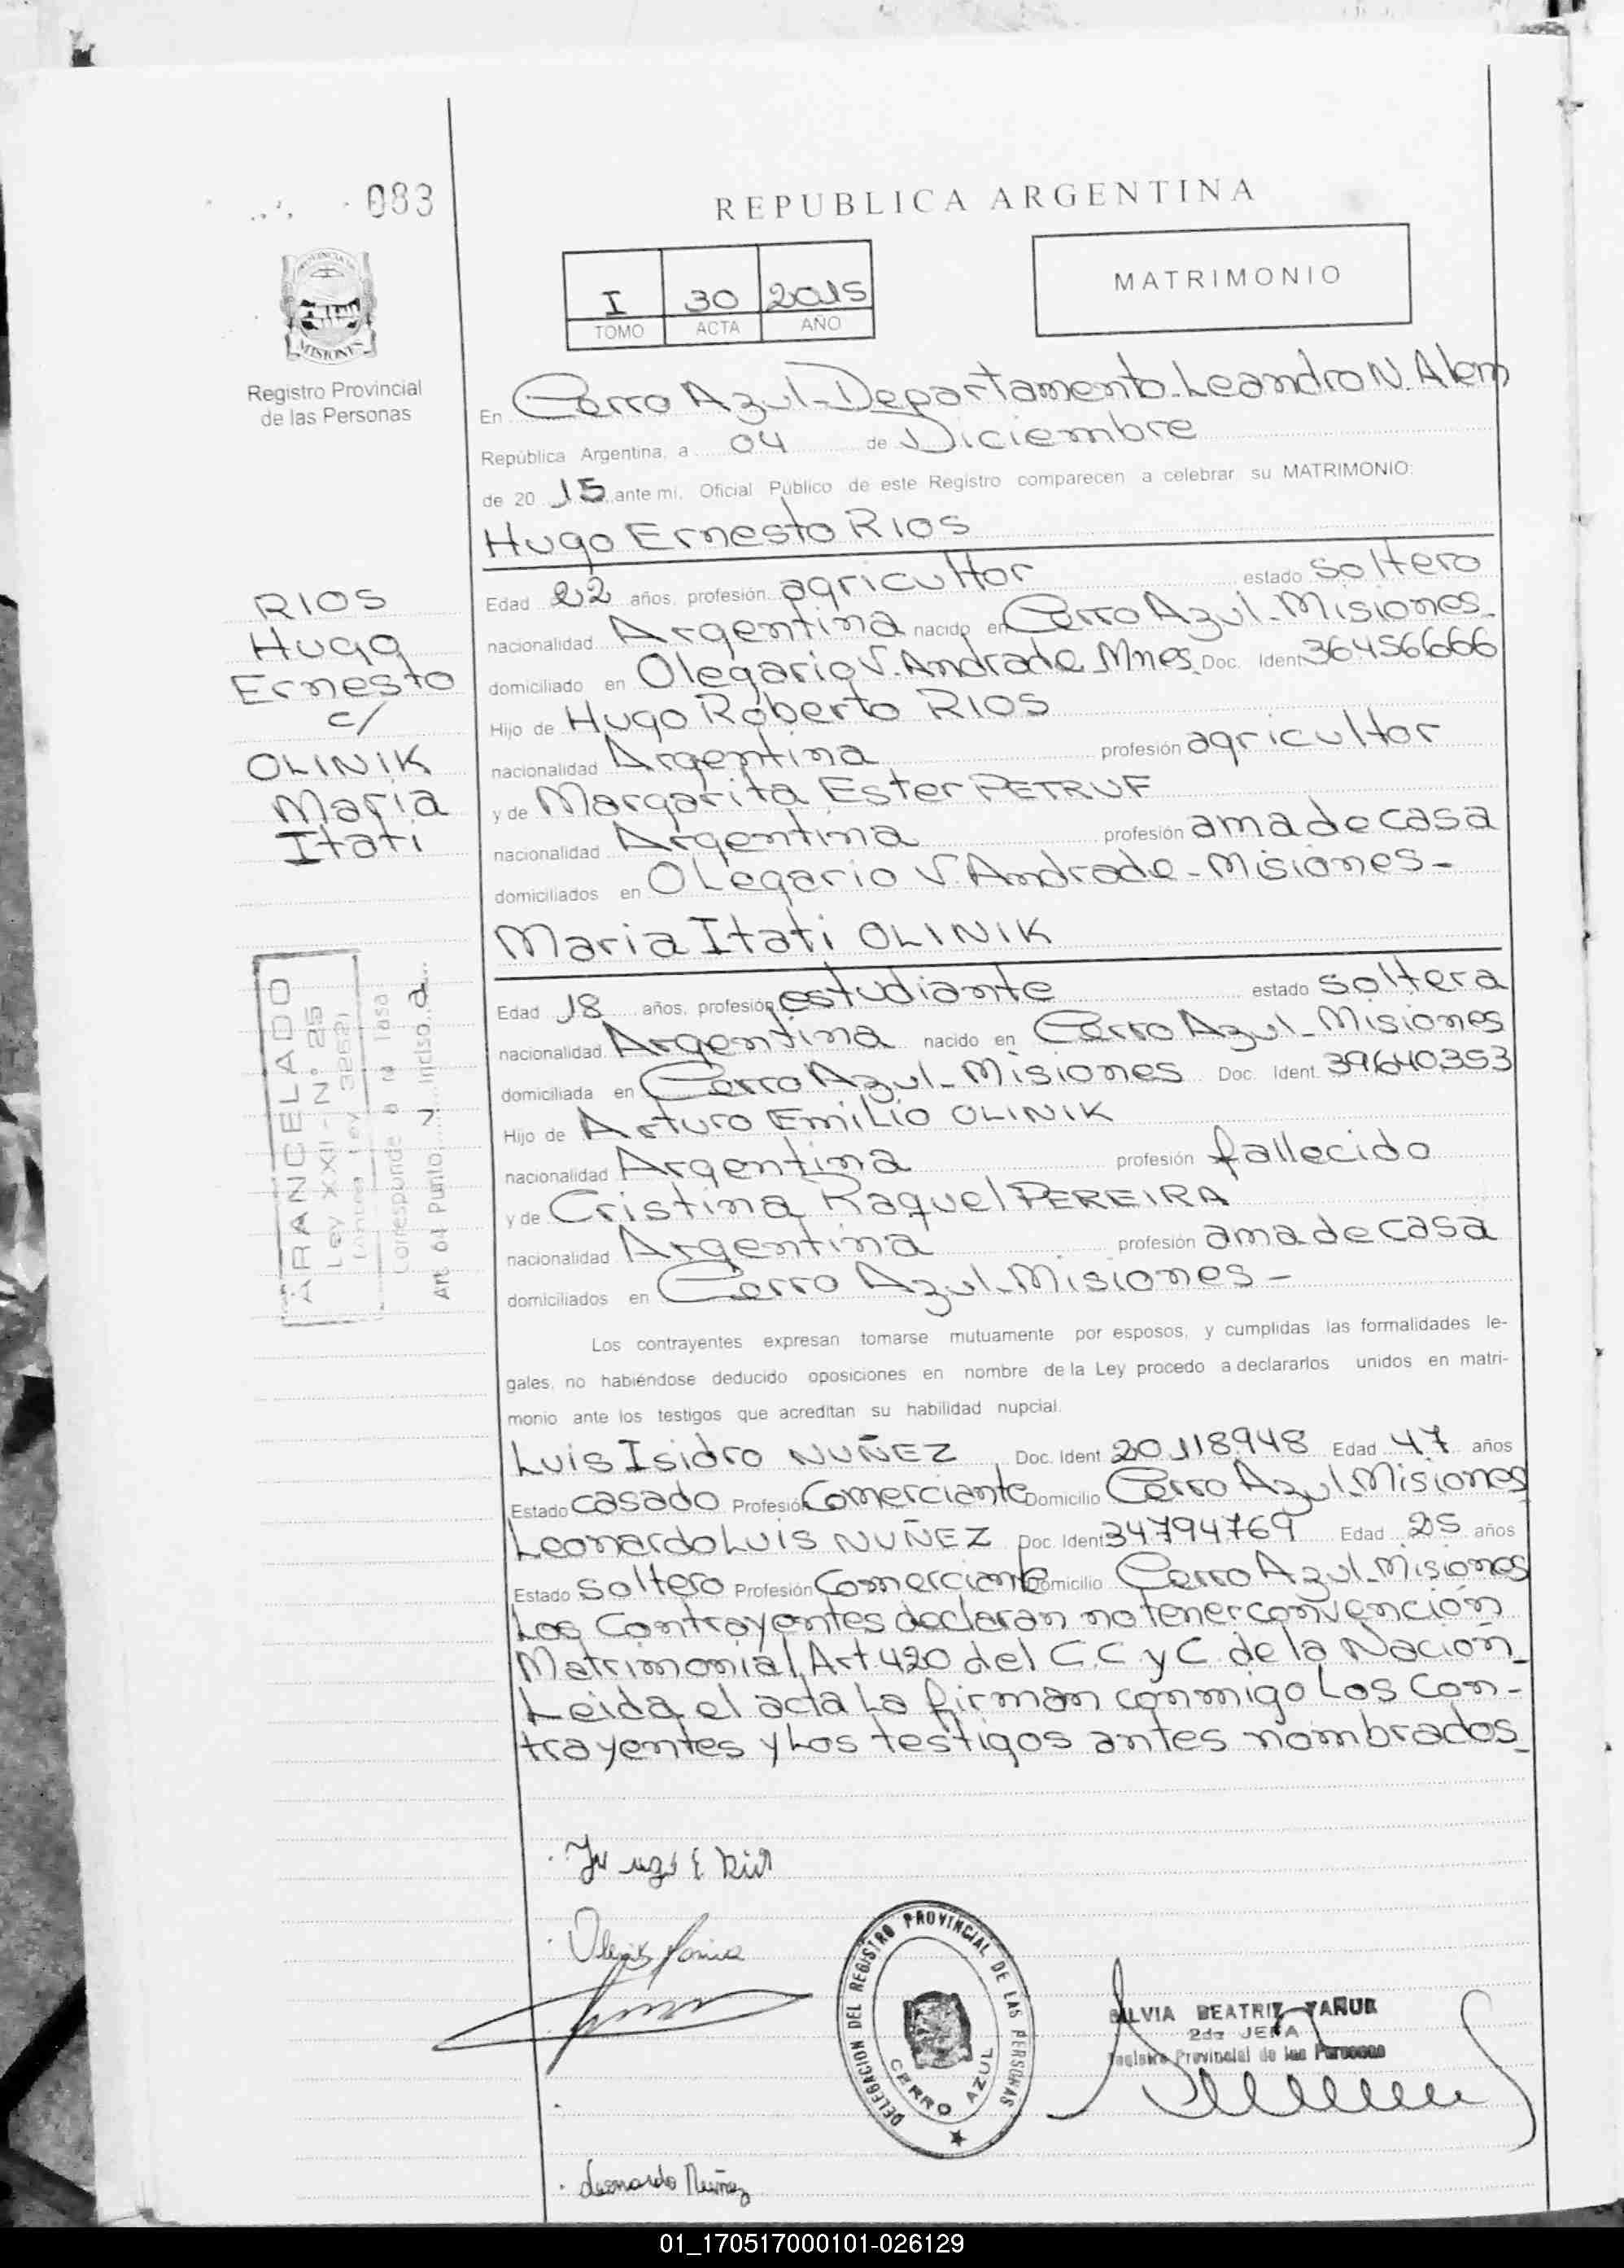 083
REPUBLICA ARGENTINA
MATRIMONIO
I 30 2015
TOMO ACTA AÑO
MISIONES
Registro Provincial
de las Personas
En Cerro Azul-Departamento-Leandro N. Alem
República Argentina, a 04 de Diciembre
de 20 15 ante mi, Oficial Público de este Registro comparecen a celebrar su MATRIMONIO:
Hugo Ernesto RIOS
RIOS
Hugo
Ernesto
c/
OLINIK
Maria
Itati
Edad 22 años, profesión agricultor estado soltero
nacionalidad Argentina nacido en Cerro Azul-Misiones-
domiciliado en Olegario V. Andrade Mnes. Doc. Ident 36456666
Hijo de Hugo Roberto RIOS
nacionalidad Argentina profesión agricultor
y de Margarita Ester PETRUF
nacionalidad Argentina profesión ama de casa
domiciliados en Olegario V. Andrade-Misiones-
Maria Itati OLINIK
Edad 18 años, profesión estudiante estado soltera
nacionalidad Argentina nacido en Cerro Azul-Misiones
domiciliada en Cerro Azul-Misiones Doc. Ident. 39640353
Hijo de Arturo Emilio OLINIK
nacionalidad Argentina profesión fallecido
y de Cristina Raquel PEREIRA
nacionalidad Argentina profesión ama de casa
domiciliados en Cerro Azul-Misiones-
ARANCELADO
Ley XXII - N° 25
Corresponde a la Tasa
Art. 04 Punto V Inciso a
Los contrayentes expresan tomarse mutuamente por esposos, y cumplidas las formalidades le-
gales, no habiéndose deducido oposiciones en nombre de la Ley procedo a declararlos unidos en matri-
monio ante los testigos que acreditan su habilidad nupcial.
Luis Isidro NUÑEZ Doc. Ident 20118948 Edad 47 años
Estado casado Profesión Comerciante Domicilio Cerro Azul-Misiones
Leonardo Luis NUÑEZ Doc. Ident 34794769 Edad 25 años
Estado soltero Profesión Comerciante Domicilio Cerro Azul-Misiones
Los Contrayentes declaran no tener convención
Matrimonial Art 420 del C.C y C. de la Nación_
Leida el acta la firman conmigo los Con-
trayentes y los testigos antes nombrados_
DELEGACION DEL REGISTRO PROVINCIAL DE LAS PERSONAS
CERRO AZUL
SILVIA BEATRIZ
2da JEFA
Registro Provincial de las Personas
Leonardo Nuñez
01_170517000101-026129